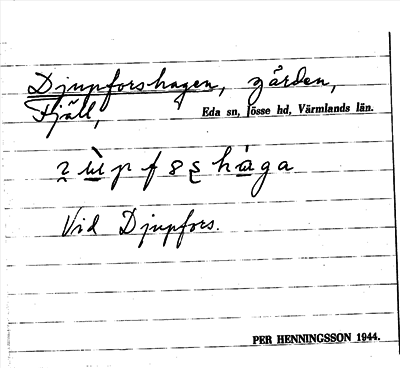 Djupforshagen, gården,
Fjäll,
Eda sn, Jösse hd, Värmlands län.
Vid Djupfors.
PER HENNINGSSON 1944.